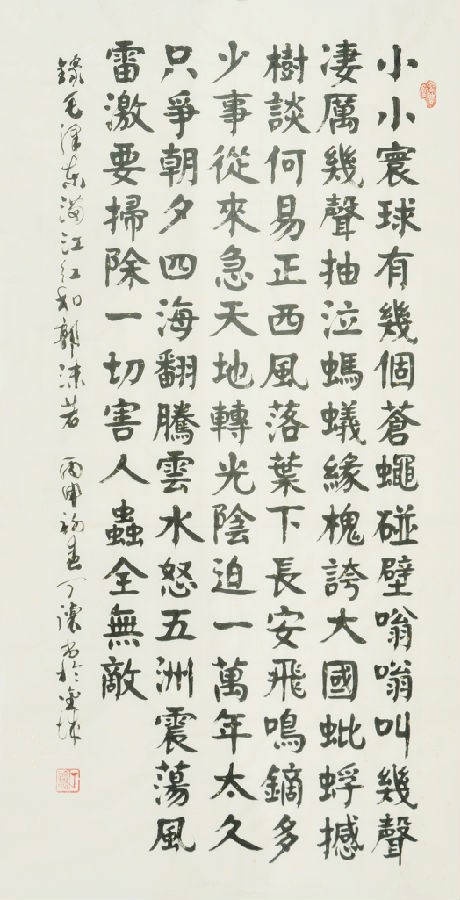 小小寰球有幾個蒼蠅碰壁嗡嗡叫幾聲
凄厲幾聲抽泣螞蟻緣槐誇大國蚍蜉撼
樹談何易正西風落葉下長安飛鳴鏑多
少事從來急天地轉光陰迫一萬年太久
只爭朝夕四海翻騰雲水怒五洲震蕩風
雷激要掃除一切害人蟲全無敵
錄毛泽东满江红和郭沫若 丙申初春丁